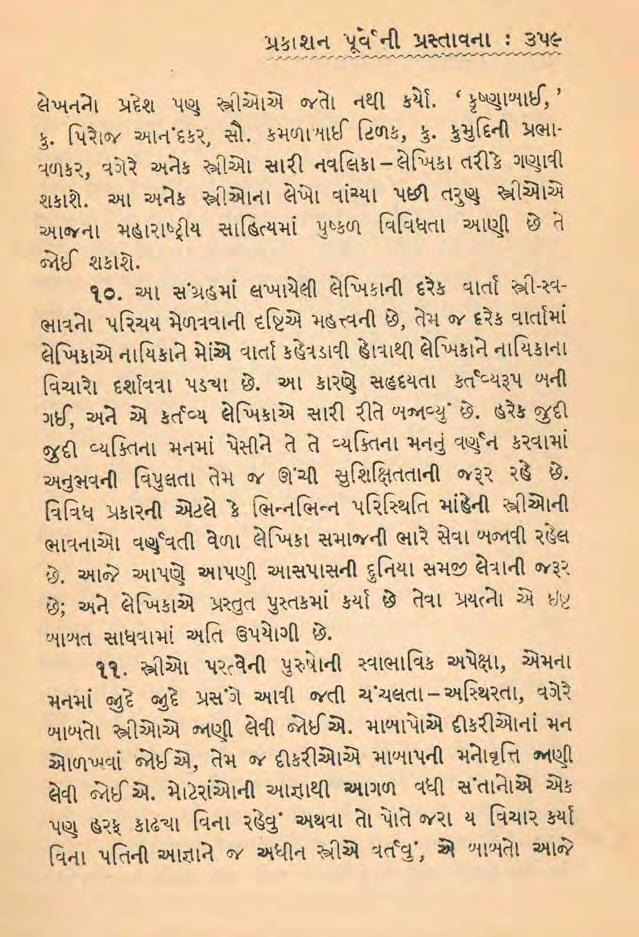 પ્રકાશન પૂર્વેની પ્રસ્તાવના : ૩૫૯
લેખનનો પ્રદેશ પણ સ્ત્રીઓએ જતો નથી કર્યો. ‘કૃષ્ણાબાઈ,’
કુ. પિરોજ આનંદકર, સૌ. કમળાબાઈ ટિળક, કુ. કુમુદિની પ્રભા-
વળકર, વગેરે અનેક સ્ત્રીઓ સારી નવલિકા–લેખિકા તરીકે ગણાવી
શકાશે. આ અનેક સ્ત્રીઓના લેખો વાંચ્યા પછી તરુણ સ્ત્રીઓએ
આજના મહારાષ્ટ્રીય સાહિત્યમાં પુષ્કળ વિવિધતા આણી છે તે
જોઈ શકાશે.
૧૦. આ સંગ્રહમાં લખાયેલી લેખિકાની દરેક વાર્તા સ્ત્રી-સ્વ-
ભાવનો પરિચય મેળવવાની દૃષ્ટિએ મહત્ત્વની છે, તેમ જ દરેક વાર્તામાં
લેખિકાએ નાયિકાને મોંએ વાર્તા કહેવડાવી હોવાથી લેખિકાને નાયિકાના
વિચારો દર્શાવવા પડ્યા છે. આ કારણે સહૃદયતા કર્તવ્યરૂપ બની
ગઈ, અને એ કર્તવ્ય લેખિકાએ સારી રીતે બજાવ્યું છે. હરેક જુદી
જુદી વ્યક્તિના મનમાં પેસીને તે તે વ્યક્તિના મનનું વર્ણન કરવામાં
અનુભવની વિપુલતા તેમ જ ઊંચી સુશિક્ષિતતાની જરૂર રહે છે.
વિવિધ પ્રકારની એટલે કે ભિન્નભિન્ન પરિસ્થિતિ માંહેની સ્ત્રીઓની
ભાવનાઓ વર્ણવતી વેળા લેખિકા સમાજની ભારે સેવા બજાવી રહેલ
છે. આજે આપણે આપણી આસપાસની દુનિયા સમજી લેવાની જરૂર
છે; અને લેખિકાએ પ્રસ્તુત પુસ્તકમાં કર્યા છે તેવા પ્રયત્નો એ ઇષ્ટ
બાબત સાધવામાં અતિ ઉપયોગી છે.
૧૧. સ્ત્રીઓ પરત્વેની પુરુષોની સ્વાભાવિક અપેક્ષા, એમના
મનમાં જુદે જુદે પ્રસંગે આવી જતી ચંચલતા–અસ્થિરતા, વગેરે
બાબતો સ્ત્રીઓએ જાણી લેવી જોઈએ. માબાપોએ દીકરીઓનાં મન
ઓળખવાં જોઈએ, તેમ જ દીકરીઓએ માબાપની મનોવૃત્તિ જાણી
લેવી જોઈએ. મોટેરાંઓની આજ્ઞાથી આગળ વધી સંતાનોએ એક
પણ હરફ કાઢ્યા વિના રહેવું અથવા તો પોતે જરા ય વિચાર કર્યા
વિના પતિની આજ્ઞાને જ અધીન સ્ત્રીએ વર્તવું, એ બાબતો આજે